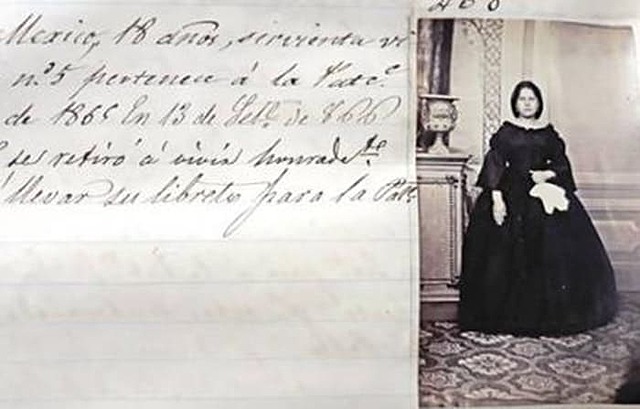 468
Mexico, 18 años, sirvienta vi
nº 5 pertenece á la Patª
de 1865 En 13 de Setᵉ de 866
se retiró á vivir honradaᵗᵉ
llevar su libreto para la Patª